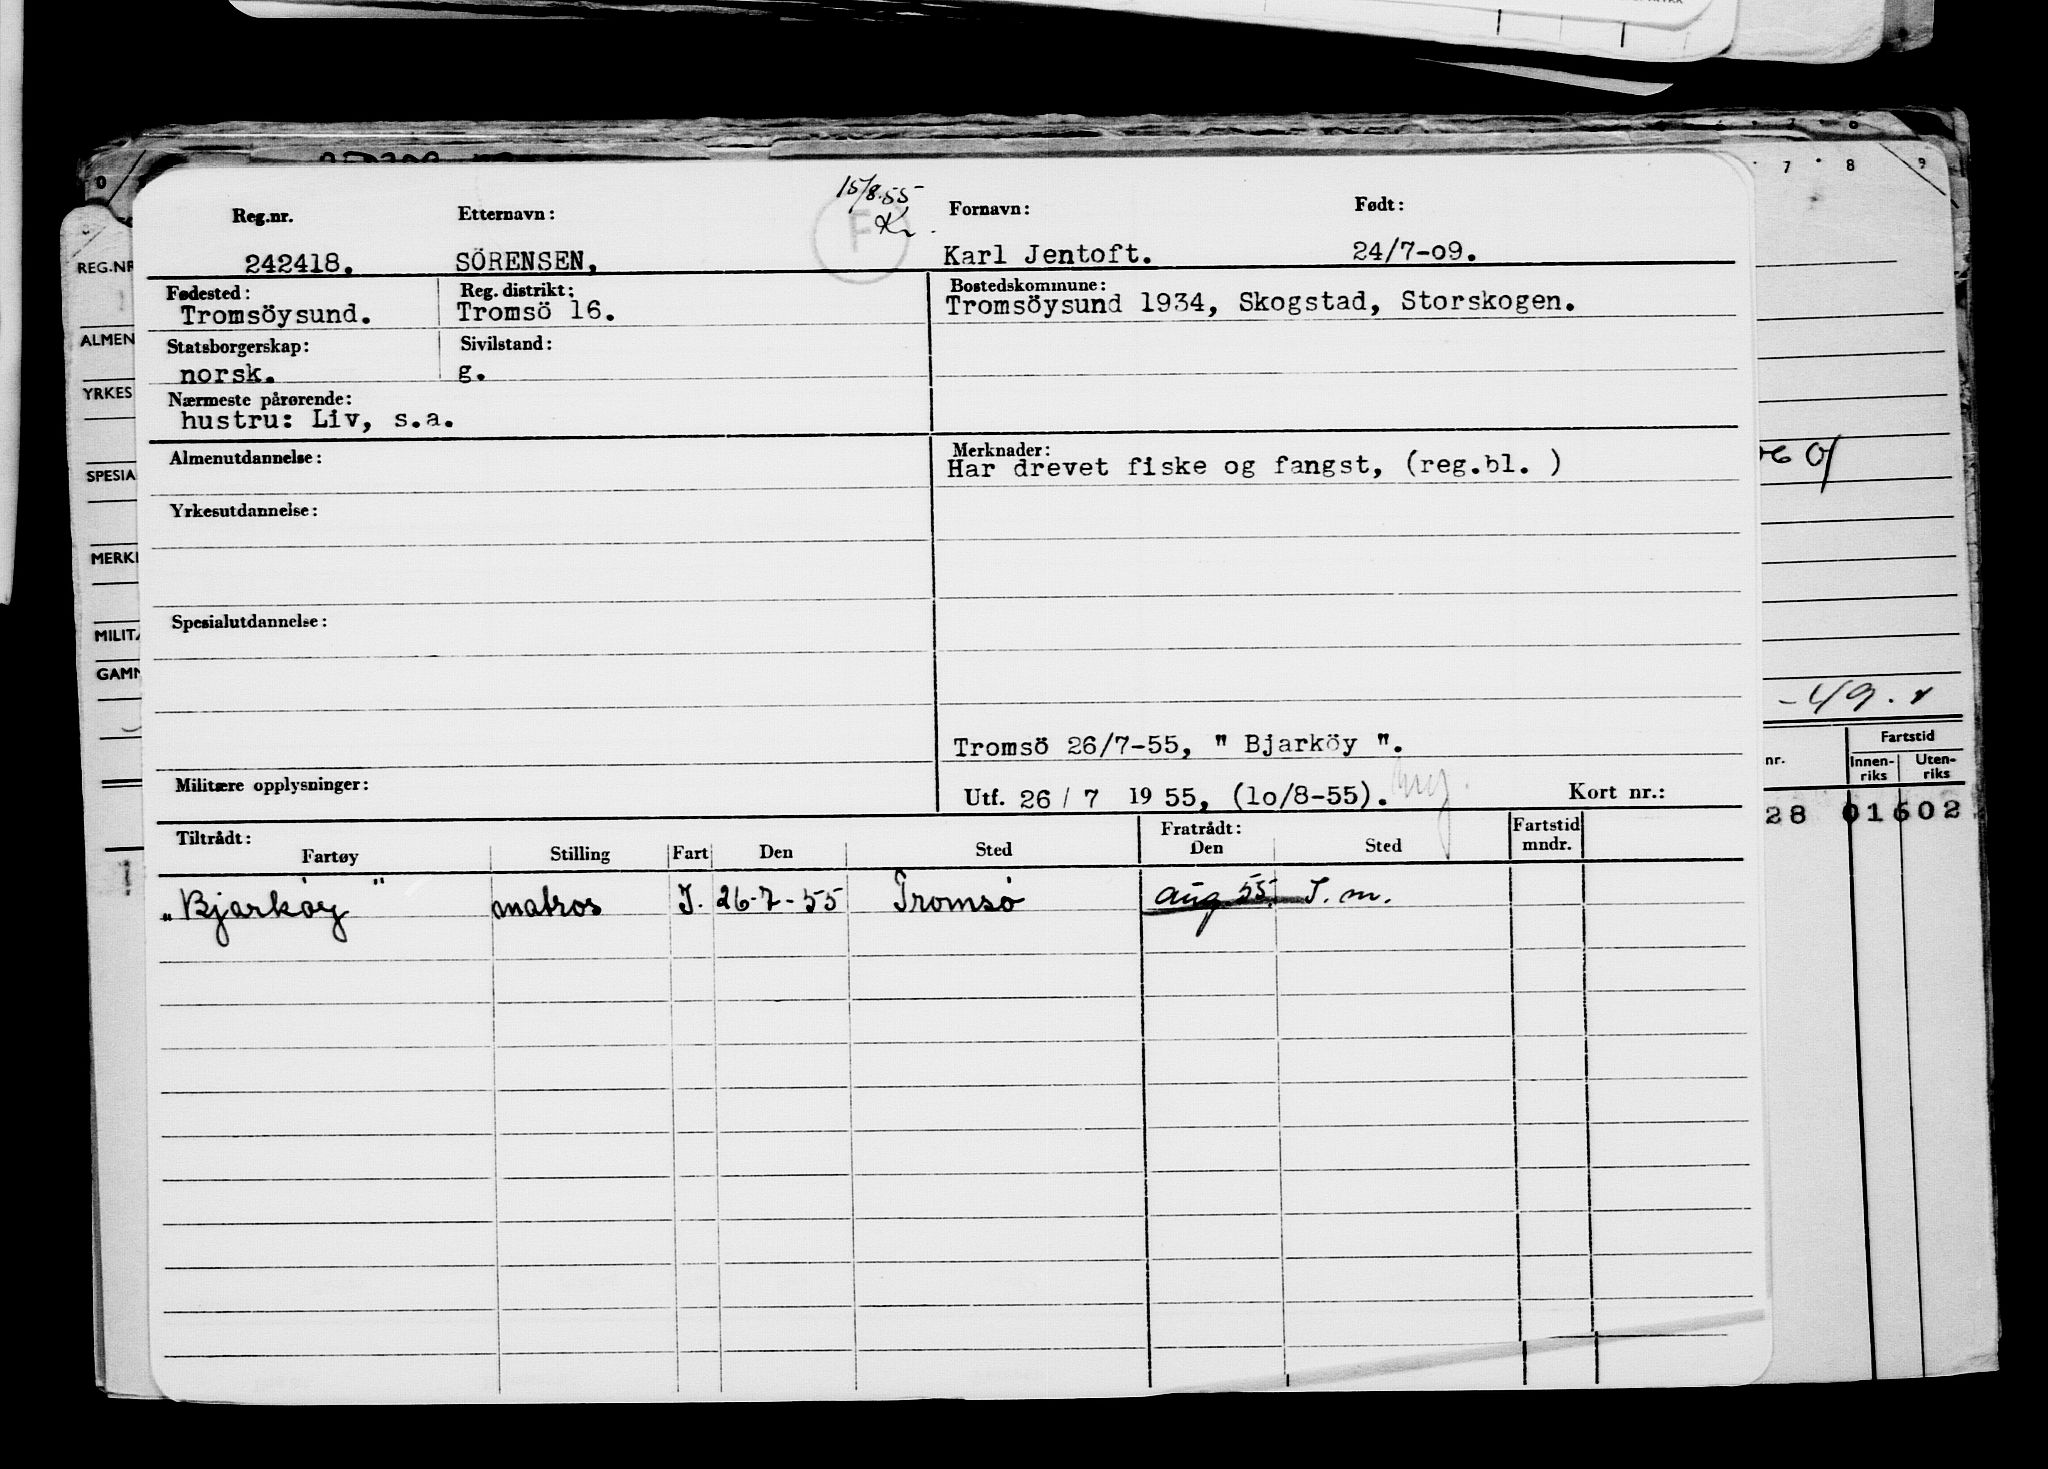 15/8.55
Reg.nr. Etternavn: F Kr. Fornavn: Født:
242418. SÖRENSEN, Karl Jentoft. 24/7-09.
Fødested: Reg. distrikt: Bostedskommune:
Tromsöysund. Tromsö 16. Tromsöysund 1934, Skogstad, Storskogen.
Statsborgerskap: Sivilstand:
norsk. g.
Nærmeste pårørende:
hustru: Liv, s.a.
Almenutdannelse: Merknader:
Har drevet fiske og fangst, (reg.bl. )
Yrkesutdannelse:
Spesialutdannelse:
Tromsö 26/7-55, " Bjarköy ".
Militære opplysninger:
Utf. 26 / 7 19 55, (lo/8-55). Kort nr.:
Tiltrådt: Fratrådt: Fartstid
Fartøy Stilling Fart Den Sted Den Sted mndr.
„Bjarkøy" matros I. 26-7-55 Tromsø aug 55 I.m.
REG.NR
ALMEN
YRKES
SPESIA
MERK
MILITÆ
GAMM
7 8 9
-49.
nr. Fartstid
Innen-riks Uten-riks
28 01602